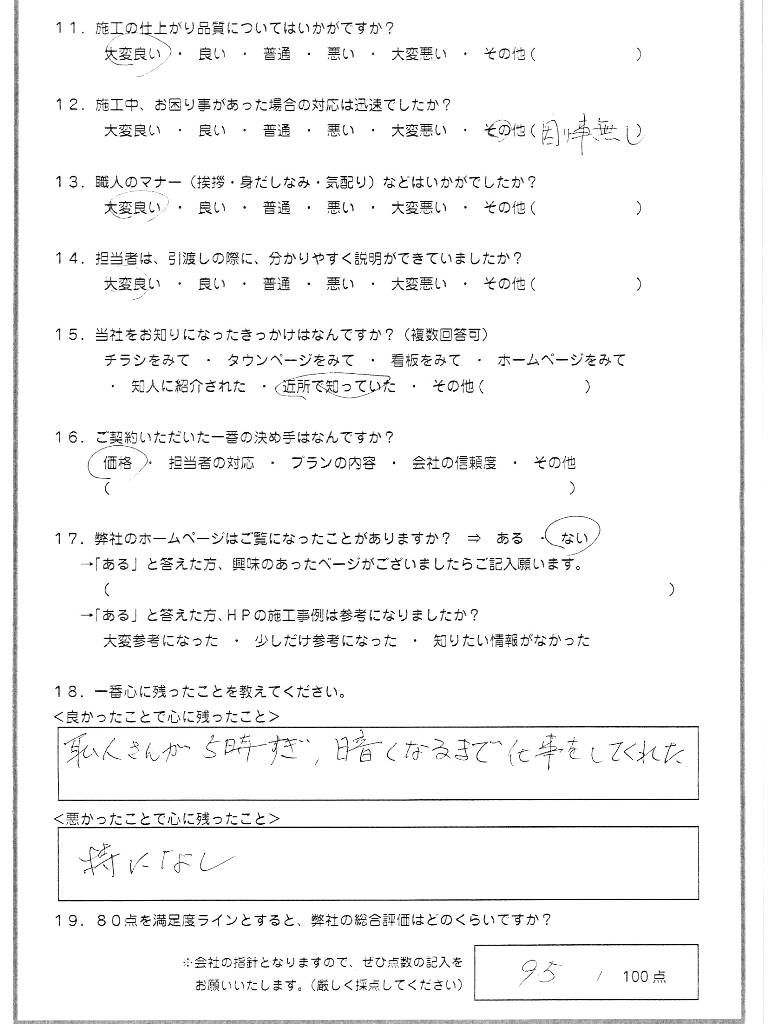 11．施工の仕上がり品質についてはいかがですか？
大変良い ・ 良い ・ 普通 ・ 悪い ・ 大変悪い ・ その他（　　　　　　　）
12．施工中、お困り事があった場合の対応は迅速でしたか？
大変良い ・ 良い ・ 普通 ・ 悪い ・ 大変悪い ・ その他（困り事無し）
13．職人のマナー（挨拶・身だしなみ・気配り）などはいかがでしたか？
大変良い ・ 良い ・ 普通 ・ 悪い ・ 大変悪い ・ その他（　　　　　　　）
14．担当者は、引渡しの際に、分かりやすく説明ができていましたか？
大変良い ・ 良い ・ 普通 ・ 悪い ・ 大変悪い ・ その他（　　　　　　　）
15．当社をお知りになったきっかけはなんですか？（複数回答可）
チラシをみて ・ タウンページをみて ・ 看板をみて ・ ホームページをみて
・ 知人に紹介された ・ 近所で知っていた ・ その他（　　　　　　　）
16．ご契約いただいた一番の決め手はなんですか？
価格 ・ 担当者の対応 ・ プランの内容 ・ 会社の信頼度 ・ その他
（　　　　　　　　　　　　　　　　　　　　　　　　　　　　　　　）
17．弊社のホームページはご覧になったことがありますか？ ⇒ ある ・ ない
→「ある」と答えた方、興味のあったページがございましたらご記入願います。
（　　　　　　　　　　　　　　　　　　　　　　　　　　　　　　　　　　　　　）
→「ある」と答えた方、HPの施工事例は参考になりましたか？
大変参考になった ・ 少しだけ参考になった ・ 知りたい情報がなかった
18．一番心に残ったことを教えてください。
＜良かったことで心に残ったこと＞
職人さんが5時すぎ，暗くなるまで仕事をしてくれた
＜悪かったことで心に残ったこと＞
特になし
19．80点を満足度ラインとすると、弊社の総合評価はどのくらいですか？
※会社の指針となりますので、ぜひ点数の記入を
お願いいたします。（厳しく採点してください）
95 / 100点